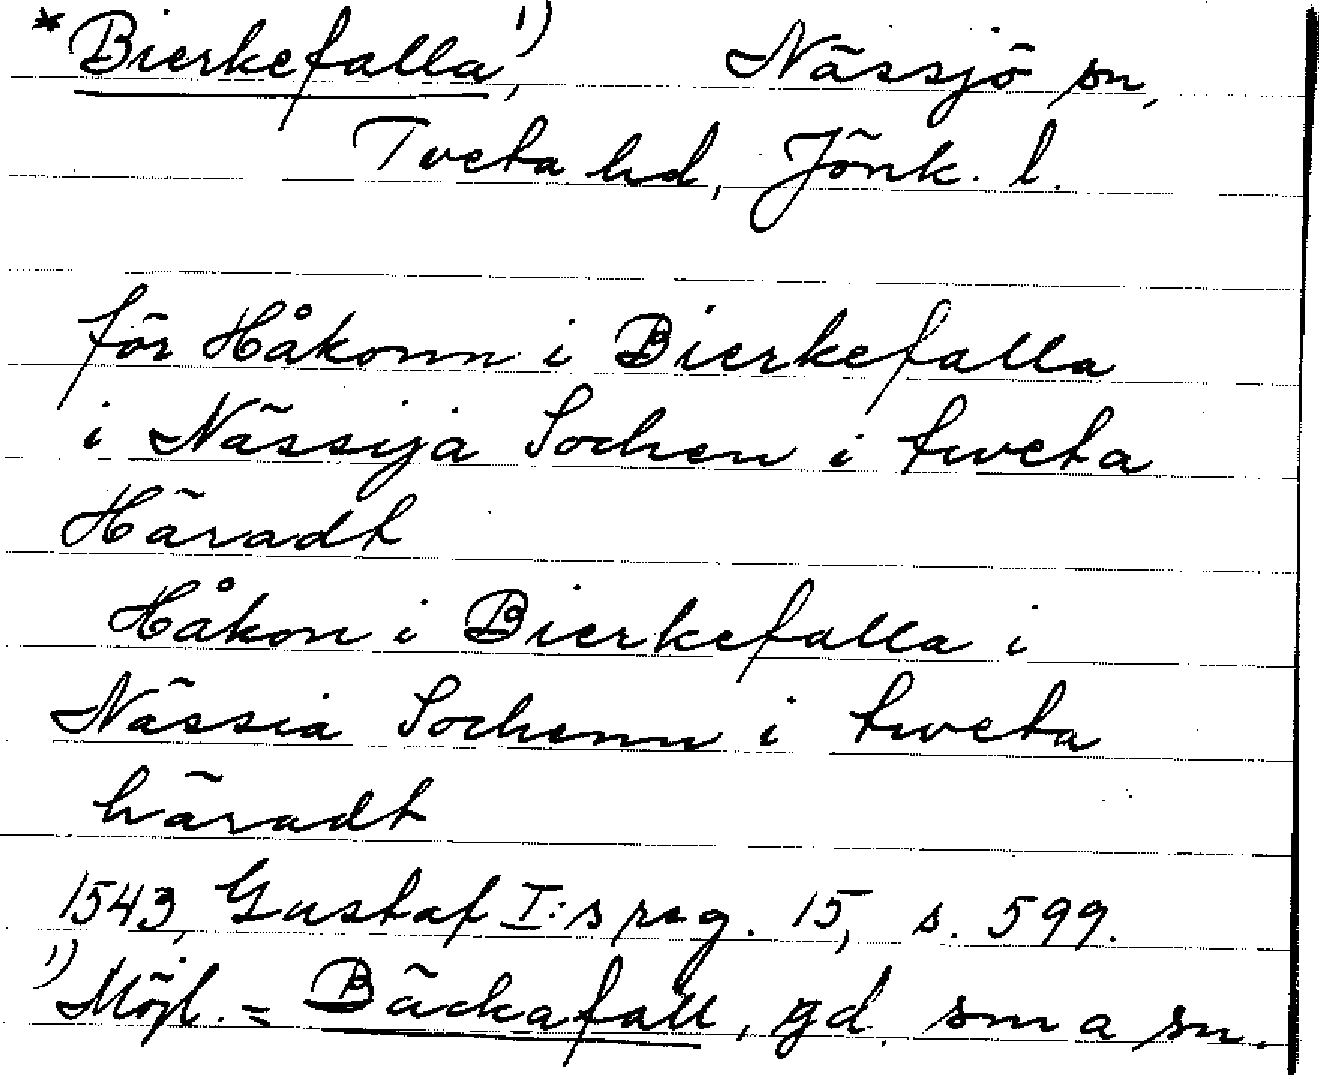 *Bierkefalla,¹) Nässjö sn,
Tveta hd, Jönk. l.
för Håkonn i Bierkefalla
i Nässija Sochen i tweta
Häradt
Håkon i Bierkefalla i
Nässia Sochenn i tweta
häradt
1543, Gustaf I:s reg. 15, s. 599.
¹) Möjl. = Bäckafall, gd. sma sn.